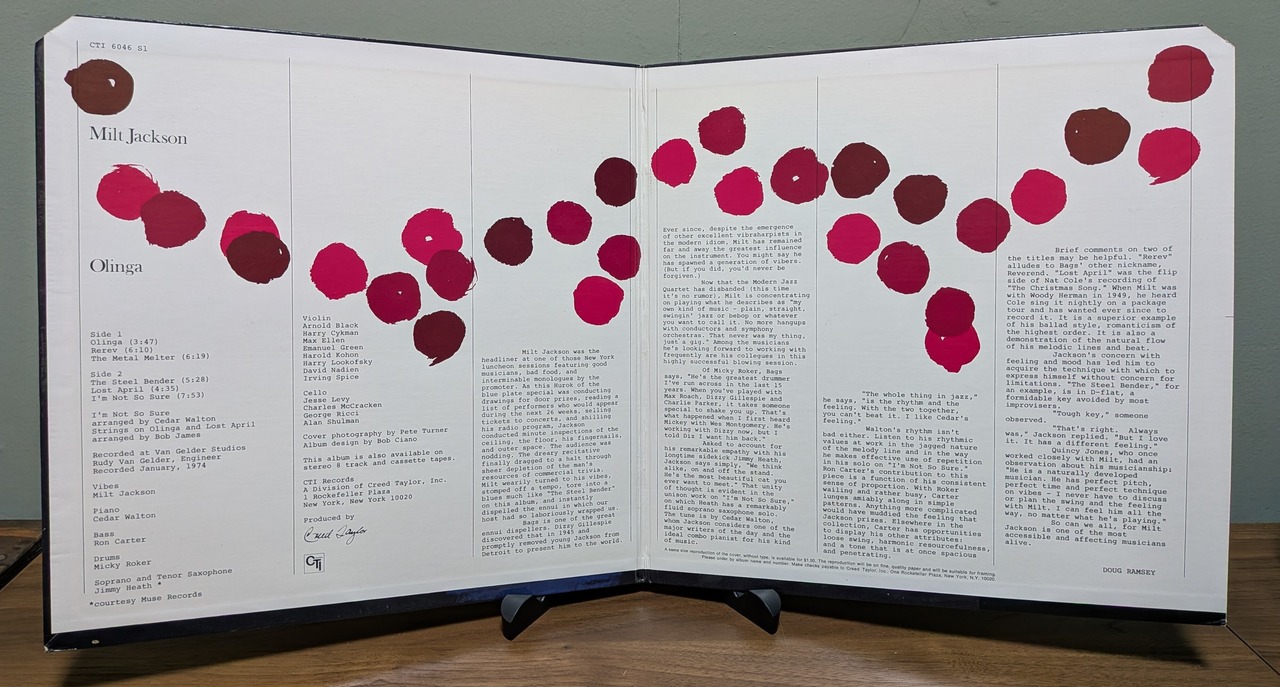 CTI 6046 S1
Milt Jackson
Olinga
Side 1
Olinga (3:47)
Rerev (6:10)
The Metal Melter (6:19)
Side 2
The Steel Bender (5:28)
Lost April (4:35)
I'm Not So Sure (7:53)
I'm Not So Sure
arranged by Cedar Walton
Strings on Olinga and Lost April
arranged by Bob James
Recorded at Van Gelder Studios
Rudy Van Gelder, Engineer
Recorded January, 1974
Vibes
Milt Jackson
Piano
Cedar Walton
Bass
Ron Carter
Drums
Micky Roker
Soprano and Tenor Saxophone
Jimmy Heath *
*courtesy Muse Records
Violin
Arnold Black
Harry Cykman
Max Ellen
Emanuel Green
Harold Kohon
Harry Lookofsky
David Nadien
Irving Spice
Cello
Jesse Levy
Charles McCracken
George Ricci
Alan Shulman
Cover photography by Pete Turner
Album design by Bob Ciano
This album is also available on
stereo 8 track and cassette tapes.
CTI Records
A Division of Creed Taylor, Inc.
1 Rockefeller Plaza
New York, New York 10020
Produced by
Creed Taylor
CTi
Milt Jackson was the
headliner at one of those New York
luncheon sessions featuring good
musicians, bad food, and
interminable monologues by the
promoter. As this Hurok of the
blue plate special was conducting
drawings for door prizes, reading a
list of performers who would appear
during the next 26 weeks, selling
tickets to concerts, and shilling
his radio program, Jackson
conducted minute inspections of the
ceiling, the floor, his fingernails,
and outer space. The audience was
nodding. The dreary recitative
finally dragged to a halt through
sheer depletion of the man's
resources of commercial trivia.
Milt wearily turned to his vibes,
stomped off a tempo, tore into a
blues much like "The Steel Bender"
on this album, and instantly
dispelled the ennui in which our
host had so laboriously wrapped us.
Bags is one of the great
ennui dispellers. Dizzy Gillespie
discovered that in 1945 and
promptly removed young Jackson from
Detroit to present him to the world.
Ever since, despite the emergence
of other excellent vibraharpists in
the modern idiom, Milt has remained
far and away the greatest influence
on the instrument. You might say he
has spawned a generation of vibers.
(But if you did, you'd never be
forgiven.)
Now that the Modern Jazz
Quartet has disbanded (this time
it's no rumor), Milt is concentrating
on playing what he describes as "my
own kind of music - plain, straight,
swingin' jazz or bebop or whatever
you want to call it. No more hangups
with conductors and symphony
orchestras. That never was my thing,
just a gig." Among the musicians
he's looking forward to working with
frequently are his collegues in this
highly successful blowing session.
Of Micky Roker, Bags
says, "He's the greatest drummer
I've run across in the last 15
years. When you've played with
Max Roach, Dizzy Gillespie and
Charlie Parker, it takes someone
special to shake you up. That's
what happened when I first heard
Mickey with Wes Montgomery. He's
working with Dizzy now, but I
told Diz I want him back."
Asked to account for
his remarkable empathy with his
longtime sidekick Jimmy Heath,
Jackson says simply, "We think
alike, on and off the stand.
He's the most beautiful cat you
ever want to meet." That unity
of thought is evident in the
unison work on "I'm Not So Sure,"
on which Heath has a remarkably
fluid soprano saxophone solo.
The tune is by Cedar Walton,
whom Jackson considers one of the
major writers of the day and the
ideal combo pianist for his kind
of music.
"The whole thing in jazz,"
he says, "is the rhythm and the
feeling. With the two together,
you can't beat it. I like Cedar's
feeling."
Walton's rhythm isn't
bad either. Listen to his rhythmic
patterns at work in the jagged nature
of the melody line and in the way
he makes effective use of repetition
in his solo on "I'm Not So Sure."
Ron Carter's contribution to this
piece is a function of his consistent
sense of proportion. With Roker
wailing and rather busy, Carter
lunges amiably along in simple
patterns. Anything more complicated
would have muddied the feeling that
Jackson prizes. Elsewhere in the
collection, Carter has opportunities
to display his other attributes;
loose swing, harmonic resourcefulness,
and a tone that is at once spacious
and penetrating.
A same size reproduction of the cover, without type, is available for $1.50. The reproduction will be on fine, quality paper and will be suitable for framing.
Please order by album name and number. Make checks payable to Creed Taylor, Inc., One Rockefeller Plaza, New York, N.Y. 10020.
Brief comments on two of
the titles may be helpful. "Rerev"
alludes to Bags' other nickname,
Reverend. "Lost April" was the flip
side of Nat Cole's recording of
"The Christmas Song." When Milt was
with Woody Herman in 1949, he heard
Cole sing it nightly on a package
tour and has wanted ever since to
record it. It is a superior example
of his ballad style, romanticism of
the highest order. It is also a
demonstration of the natural flow
of his melodic lines and beat.
Jackson's concern with
feeling and mood has led him to
acquire the technique with which to
express himself without concern for
limitations. "The Steel Bender," for
an example, is in D-flat, a
formidable key avoided by most
improvisers.
"Tough key," someone
observed.
"That's right. Always
was," Jackson replied. "But I love
it. It has a different feeling."
Quincy Jones, who once
worked closely with Milt, had an
observation about his musicianship:
"He is a naturally developed
musician. He has perfect pitch,
perfect time and perfect technique
on vibes - I never have to discuss
or plan the swing and the feeling
with Milt. I can feel him all the
way, no matter what he's playing."
So can we all, for Milt
Jackson is one of the most
accessible and affecting musicians
alive.
DOUG RAMSEY